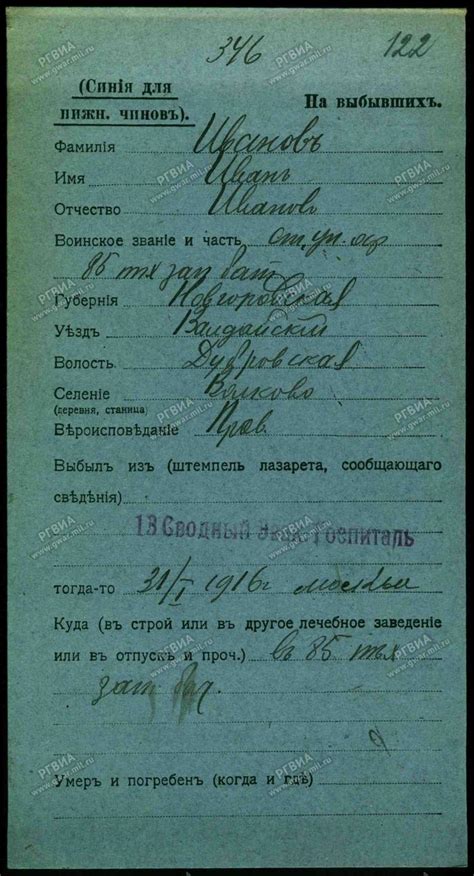 346 122
(Синія для
нижн. чиновъ).
На выбывшихъ.
Фамилія Ивановъ
Имя Иванъ
Отчество Ивановъ
Воинское званіе и часть ст. ун. оф
85 тх зап бат
Губернія Новгородская
Уѣздъ Валдайскій
Волость Дубровская
Селеніе Волково
(деревня, станица)
Вѣроисповѣданіе Прав
Выбылъ изъ (штемпель лазарета, сообщающаго
свѣдѣнія)
13 Сводный Эвак. Госпиталь
тогда-то 31/I 1916 г Москвы
Куда (въ строй или въ другое лечебное заведеніе
или въ отпускъ и проч.) въ 85 тх
зап
Умеръ и погребенъ (когда и гдѣ)
РГВИА
www.gwar.mil.ru